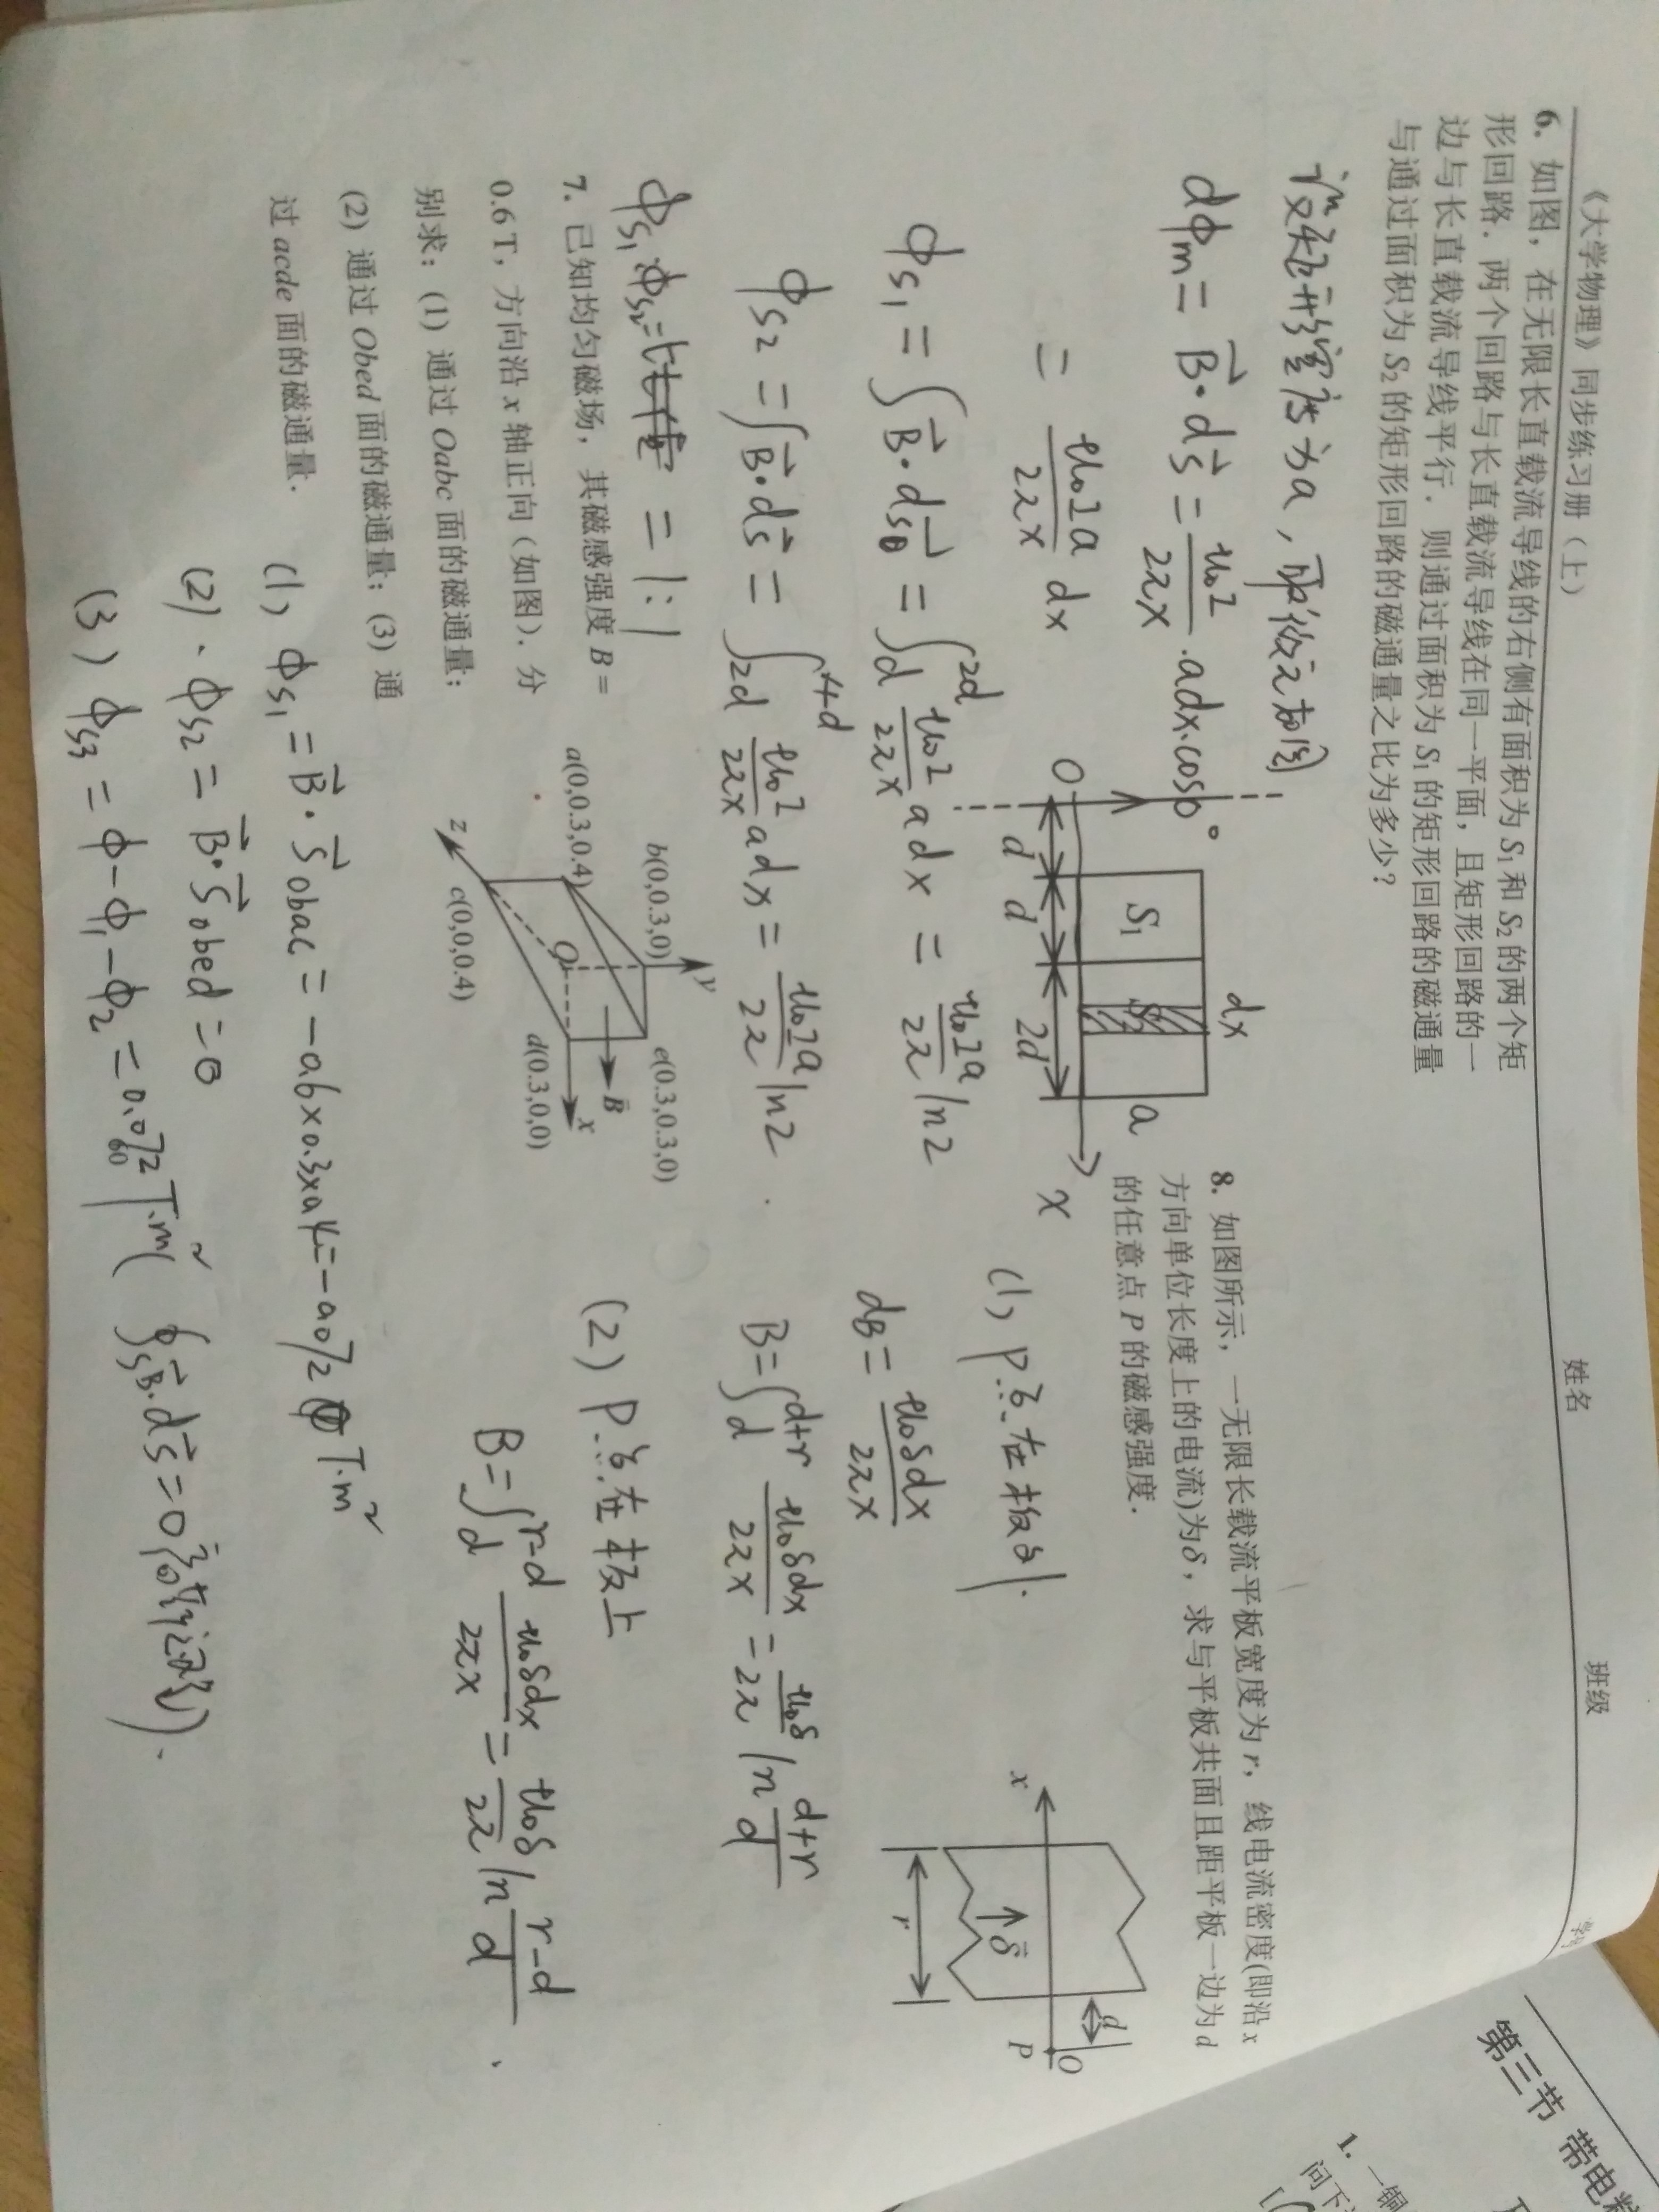 《大学物理》同步练习册（上）
姓名
班级
学号
6. 如图，在无限长直载流导线的右侧有面积为 S₁ 和 S₂ 的两个矩
形回路．两个回路与长直载流导线在同一平面，且矩形回路的一
边与长直载流导线平行．则通过面积为 S₁ 的矩形回路的磁通量
与通过面积为 S₂ 的矩形回路的磁通量之比为多少？
设矩形宽度为a，取微元如图
dφm = B⃗·ds⃗ = μ₀I/2πx ·adx·cos0°
= μ₀Ia/2πx dx
dx
S₁
S₂
a
O
d
d
2d
x
φs₁ = ∫B⃗·ds⃗ = ∫d^2d μ₀I/2πx adx = μ₀Ia/2π ln2
φs₂ = ∫B⃗·ds⃗ = ∫2d^4d μ₀I/2πx adx = μ₀Ia/2π ln2
φs₁:φs₂= = 1:1
7. 已知均匀磁场，其磁感强度 B =
0.6 T，方向沿 x 轴正向（如图）．分
别求：(1) 通过 Oabc 面的磁通量；
(2) 通过 Obed 面的磁通量；(3) 通
过 acde 面的磁通量．
y
b(0,0.3,0)
e(0.3,0.3,0)
a(0,0.3,0.4)
B⃗
O
x
d(0.3,0,0)
z
c(0,0,0.4)
(1) φs₁ = B⃗·S⃗obac = -0.6×0.3×0.4=-0.072 T·m²
(2)·φs₂ = B⃗·S⃗obed = 0
(3) φs₃ = φ-φ₁-φ₂ = 0.072 T·m² (∮s B⃗·ds⃗ = 0 高斯定理).
8. 如图所示，一无限长载流平板宽度为 r，线电流密度(即沿 x
方向单位长度上的电流)为 δ，求与平板共面且距平板一边为 d
的任意点 P 的磁感强度．
x
δ⃗
r
d
O
P
(1) P点在板外.
dB = μ₀δdx/2πx
B=∫d^d+r μ₀δdx/2πx = μ₀δ/2π ln d+r/d
(2) P点在板上
B=∫d^r-d μ₀δdx/2πx = μ₀δ/2π ln r-d/d
第三节 带电粒
1. 一铜
问下